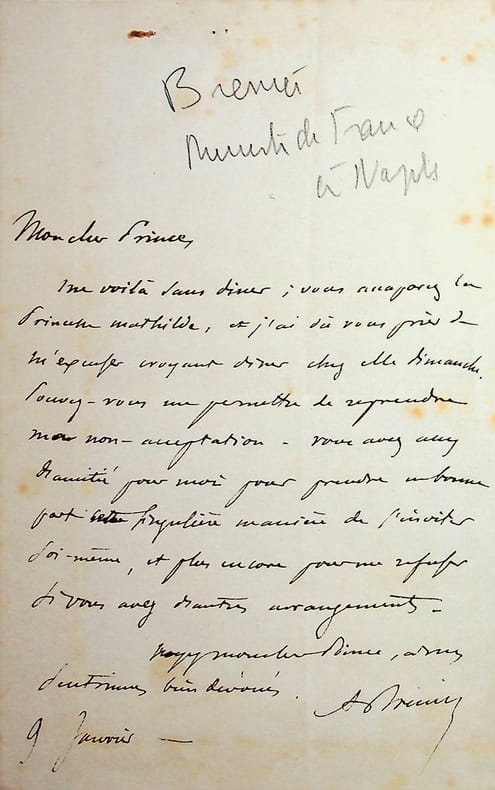 Brenier
Ministre de France
à Naples
Mon cher Prince,
me voilà sans diner ; vous accaparez la
Princesse mathilde, et j'ai dû vous prier de
m'excuser croyant diner chez elle dimanche.
Pouvez-vous me permettre de reprendre
ma non-acceptation - vous avez assez
d'amitié pour moi pour prendre en bonne
part cette singulière manière de s'inviter
soi-même, et plus encore pour me refuser
si vous avez d'autres arrangements -
mon cher Prince, à mes
sentiments bien dévoués.
A Brenier
9 Janvier -